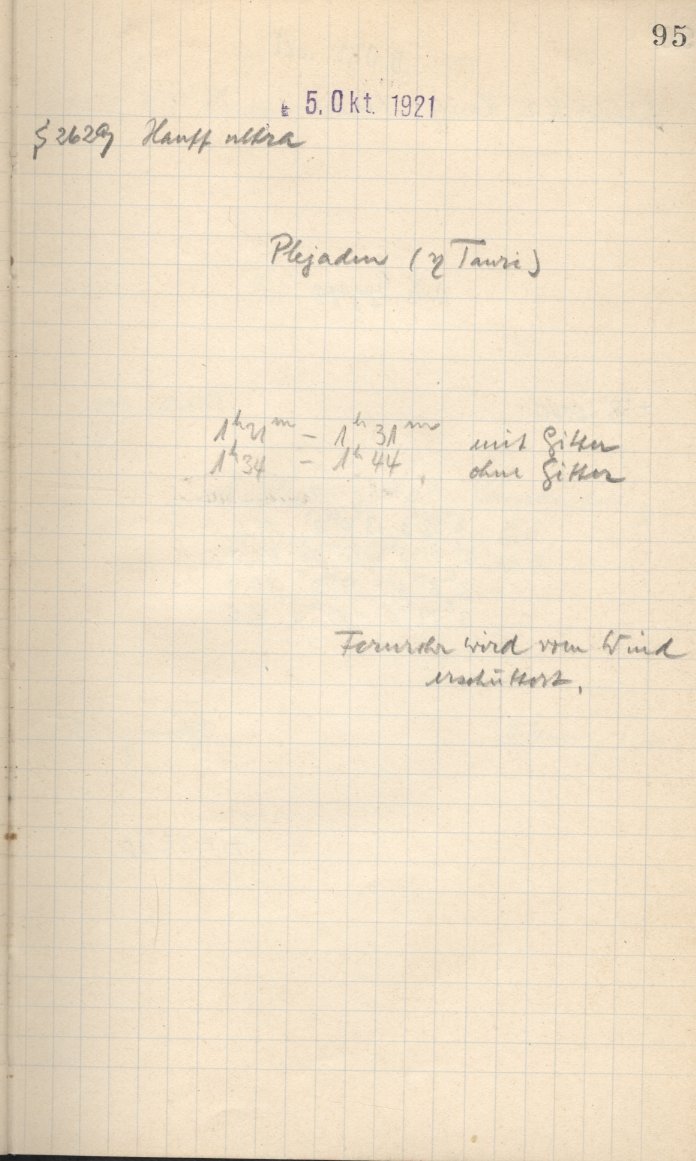 95
5. Okt. 1921
Hauff ultra
Plejaden (η Tauri)
1ʰ21ᵐ – 1ʰ31ᵐ mit Gitter
1ʰ34 – 1ʰ44, ohne Gitter
Fernrohr wird vom Wind
erschüttert.